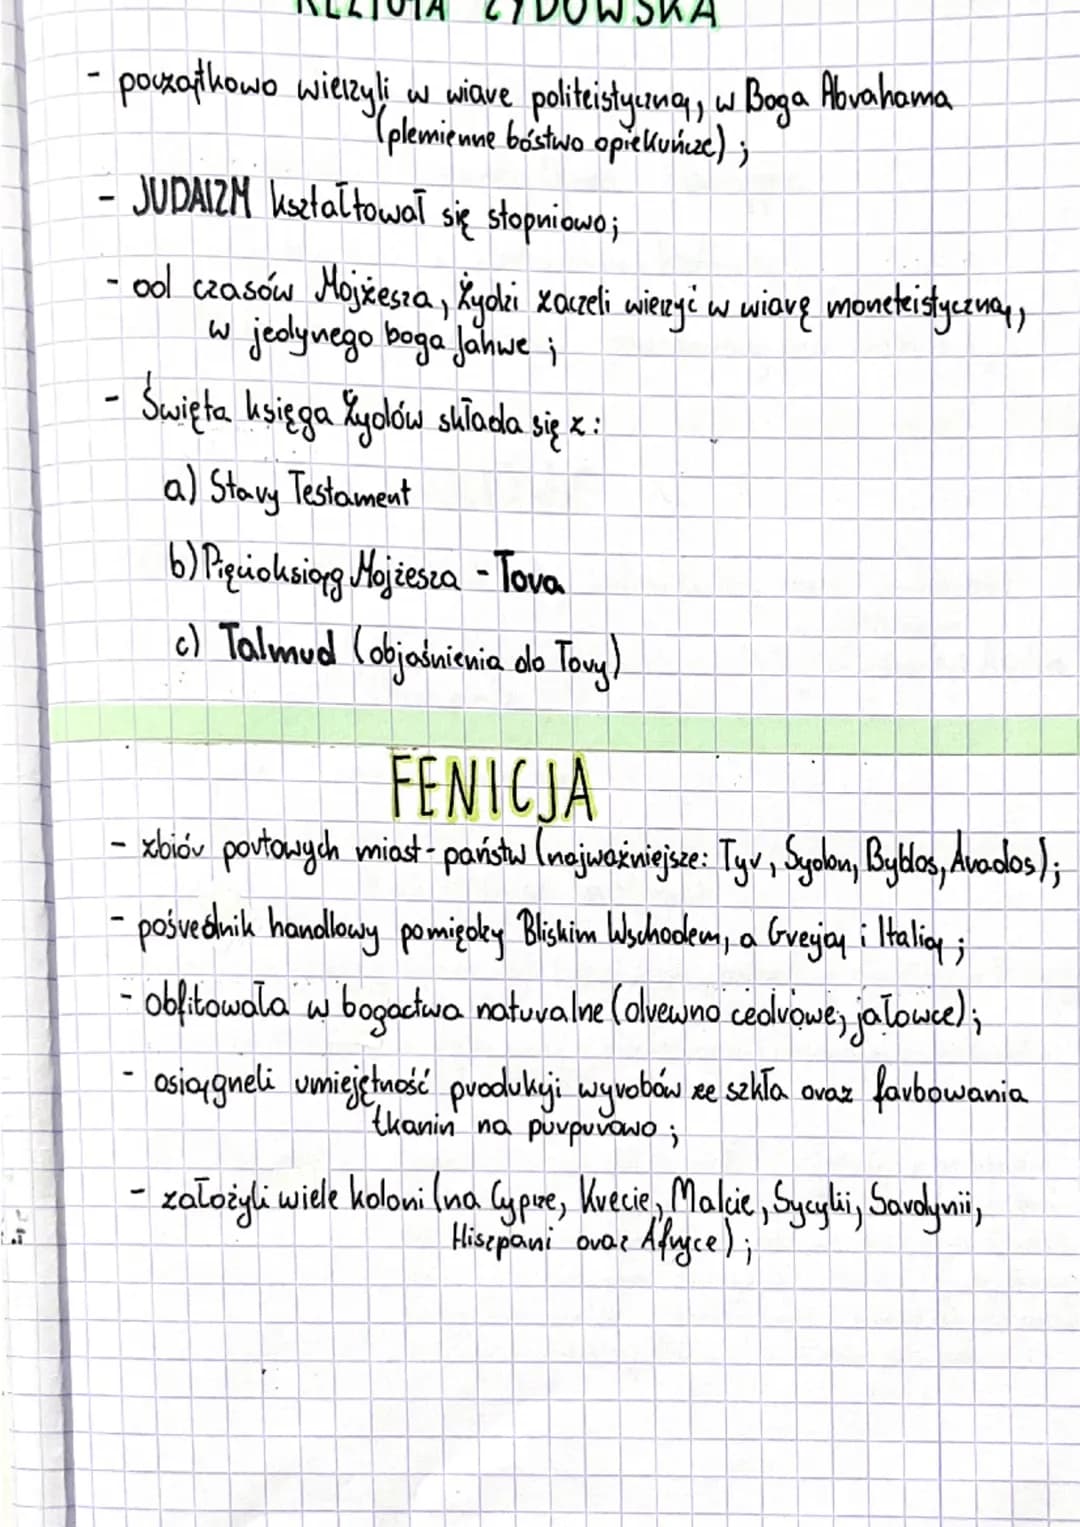 RELIGIA ŻYDOWSKA
- początkowo wierzyli w wiare politeistyczną, w Boga Abrahama
(plemienne bóstwo opiekuńcze);
- JUDAIZM kształtował się stopniowo;
- od czasów Mojżesza, Żydzi zaczeli wierzyć w wiarę moneteistyczną,
w jedynego boga Jahwe;
- Święta księga Żydów składa się z:
a) Stary Testament
b) Pięcioksiąg Mojżesza - Tora
c) Talmud (objaśnienia do Tory)
FENICJA
- zbiór portowych miast-państw (najważniejsze: Tyr, Sydon, Byblos, Arados);
- pośrednik handlowy pomiędzy Bliskim Wschodem, a Grecją i Italią;
- obfitowała w bogactwa naturalne (drewno cedrowe, jałowce);
- osiągneli umiejętność produkcji wyrobów ze szkła oraz farbowania
tkanin na purpurowo;
- założyli wiele koloni (na Cyprze, Krecie, Malcie, Sycylii, Sardynii,
Hiszpani oraz Afryce);